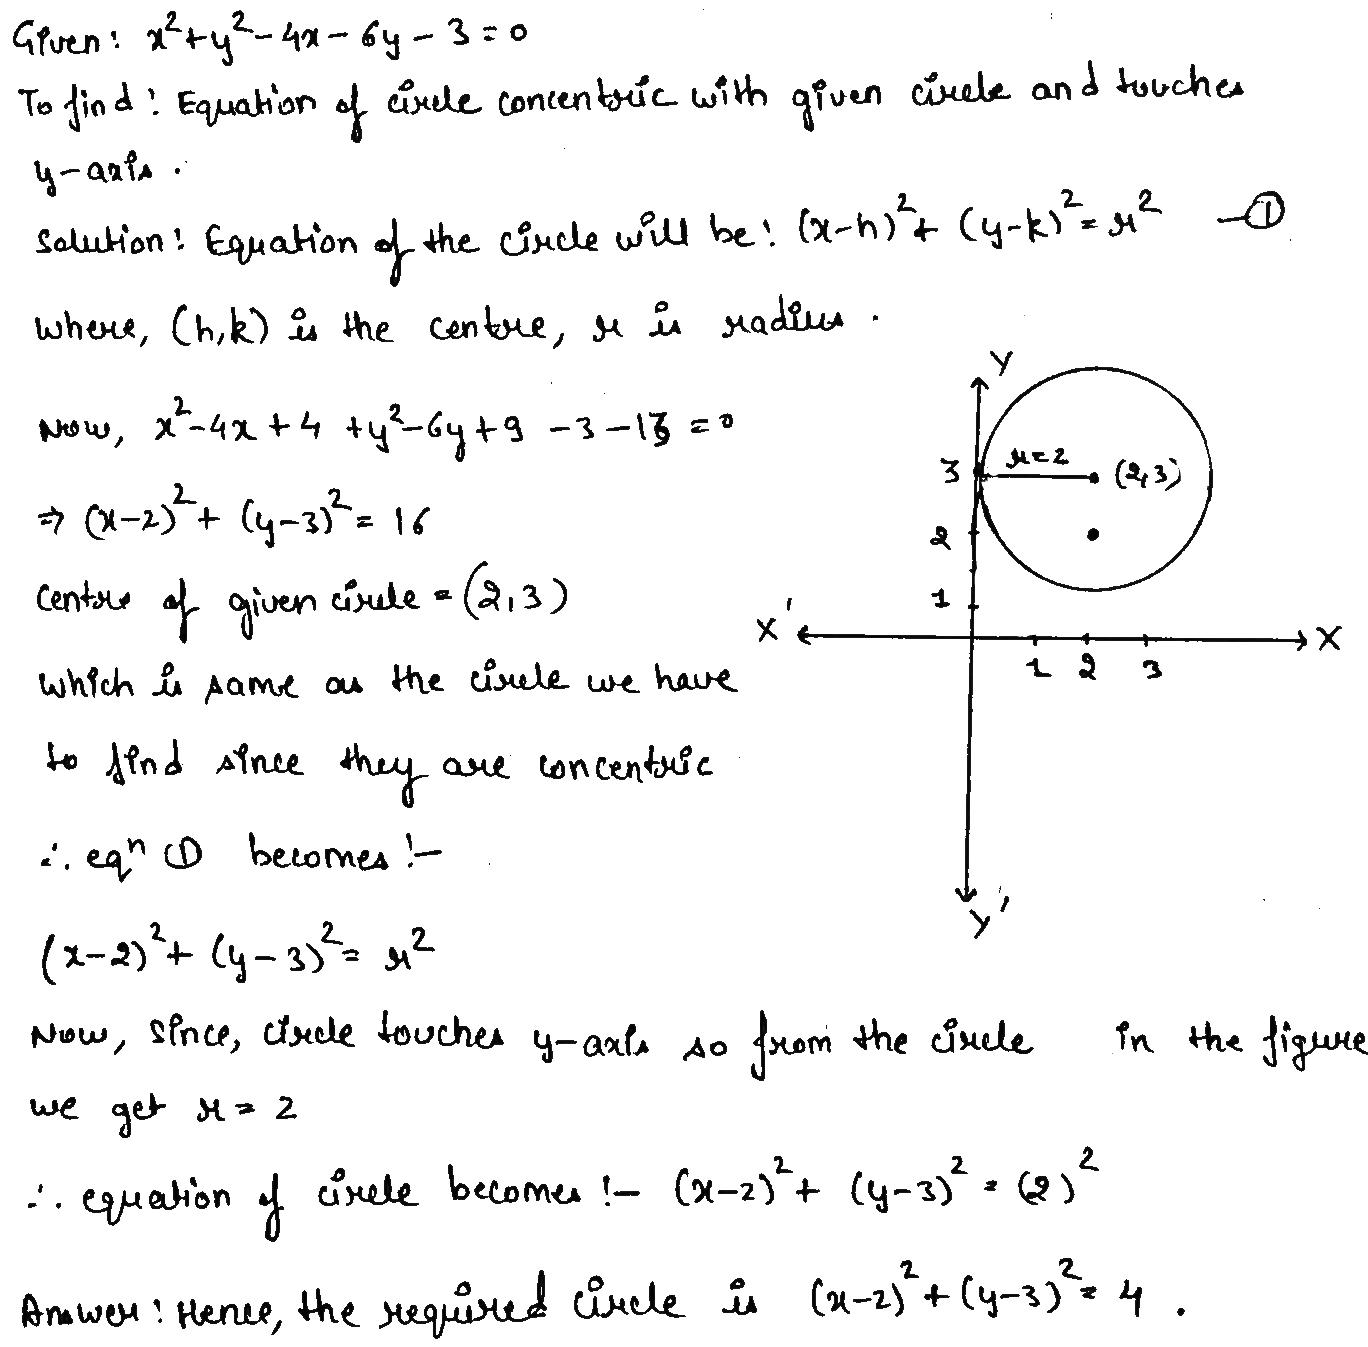 Given: x²+y²-4x-6y-3=0
To find: Equation of circle concentric with given circle and touches
y-axis.
Solution: Equation of the circle will be: (x-h)²+(y-k)²=r² -①
where, (h,k) is the centre, r is radius.
Now, x²-4x+4+y²-6y+9-3-13=0
⇒ (x-2)²+(y-3)²=16
Centre of given circle=(2,3)
which is same as the circle we have
to find since they are concentric
∴ eqⁿ ① becomes:-
(x-2)²+(y-3)²=r²
Now, since, circle touches y-axis so from the circle in the figure
we get r=2
∴ equation of circle becomes:- (x-2)²+(y-3)²=(2)²
Answer: Hence, the required circle is (x-2)²+(y-3)²=4.
Y
3 r=2 (2,3)
2
1
X' X
1 2 3
Y'